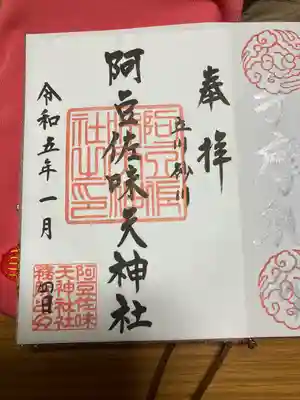 奉拝
立川砂川
阿豆佐味天神社
阿豆佐味天神社之印
令和五年一月
四日
阿豆佐味
天神社社
務所之印